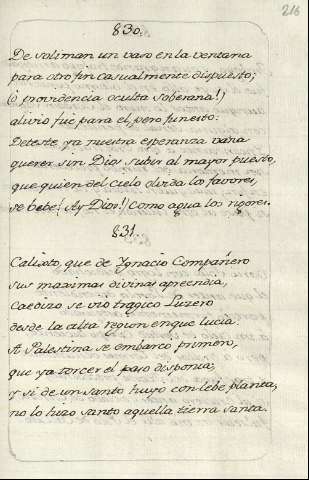 216
830.
De soliman un vaso en la ventana
para otro fin casualmente dispuesto;
(ò providencia oculta soberana!)
alivio fue para el, pero funesto:
Deterte ya nuestra esperanza vana
querer sin Dios subir al mayor puesto,
que quien del cielo olvida los favores,
se bebe! Ay Dios!) como agua los rigores.
831.
Calixto, que de Ygnacio Compañero
sus maximas divinas aprendia,
caedizo se viò tragico Luzero
desde la alta region enque lucìa.
A Palestina se embarcò primero,
que ya torcer el paso disponìa;
y si de un santo huyò con lebe planta,
no lo hizo santo aquella tierra santa.